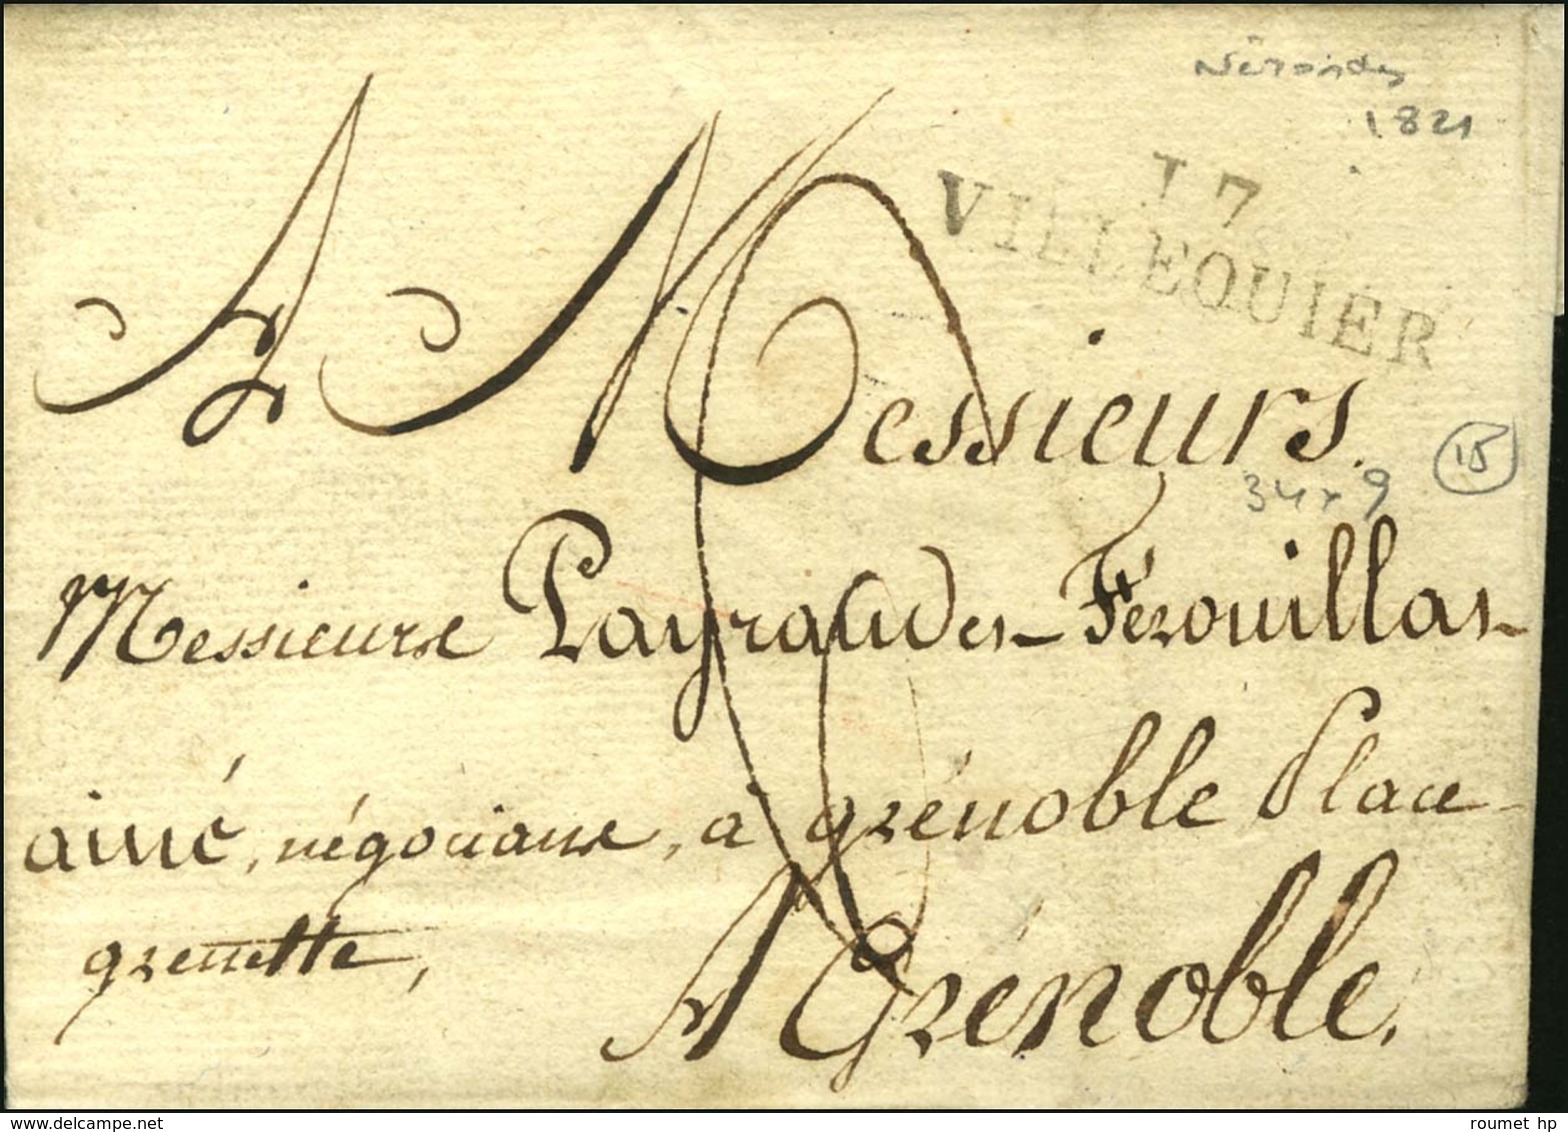 Nérondes
1821
17
VILLEQUIER
A Messieurs
34 x 9
15
Messieurs Payraud et Férouillat
ainé, négocians, a grénoble Place
grenette,
A Grénoble.
www.delcampe.net
roumet hp